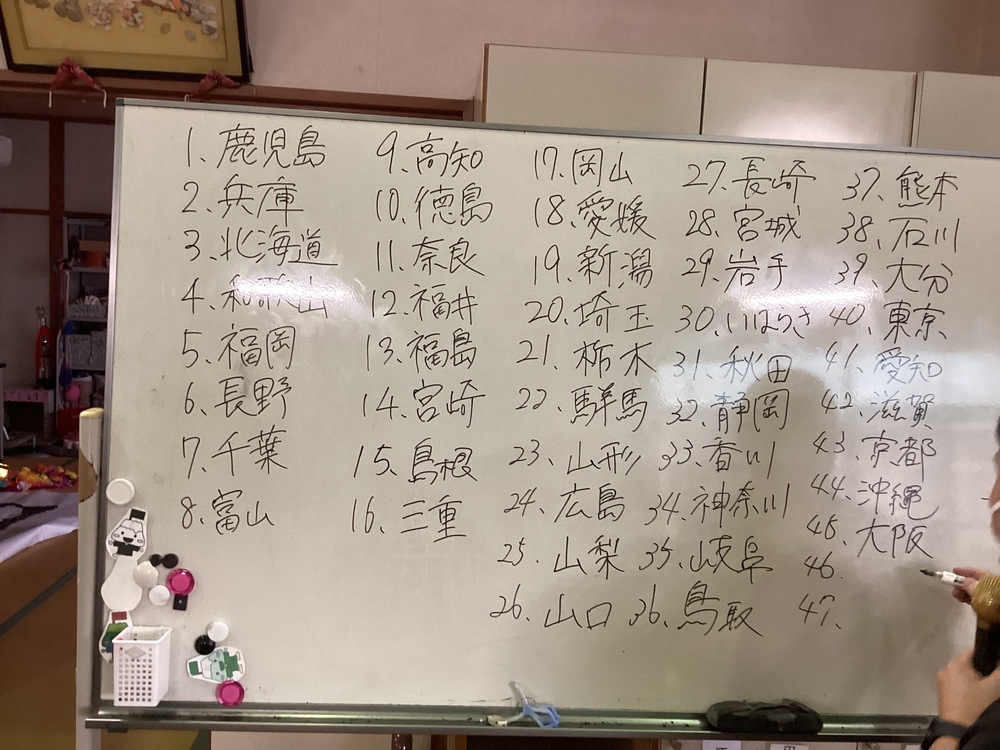 1、鹿児島
2、兵庫
3、北海道
4、和歌山
5、福岡
6、長野
7、千葉
8、富山
9、高知
10、徳島
11、奈良
12、福井
13、福島
14、宮崎
15、島根
16、三重
17、岡山
18、愛媛
19、新潟
20、埼玉
21、栃木
22、群馬
23、山形
24、広島
25、山梨
26、山口
27、長崎
28、宮城
29、岩手
30、いばらき
31、秋田
32、静岡
33、香川
34、神奈川
35、岐阜
36、鳥取
37、熊本
38、石川
39、大分
40、東京
41、愛知
42、滋賀
43、京都
44、沖縄
45、大阪
46、
47、